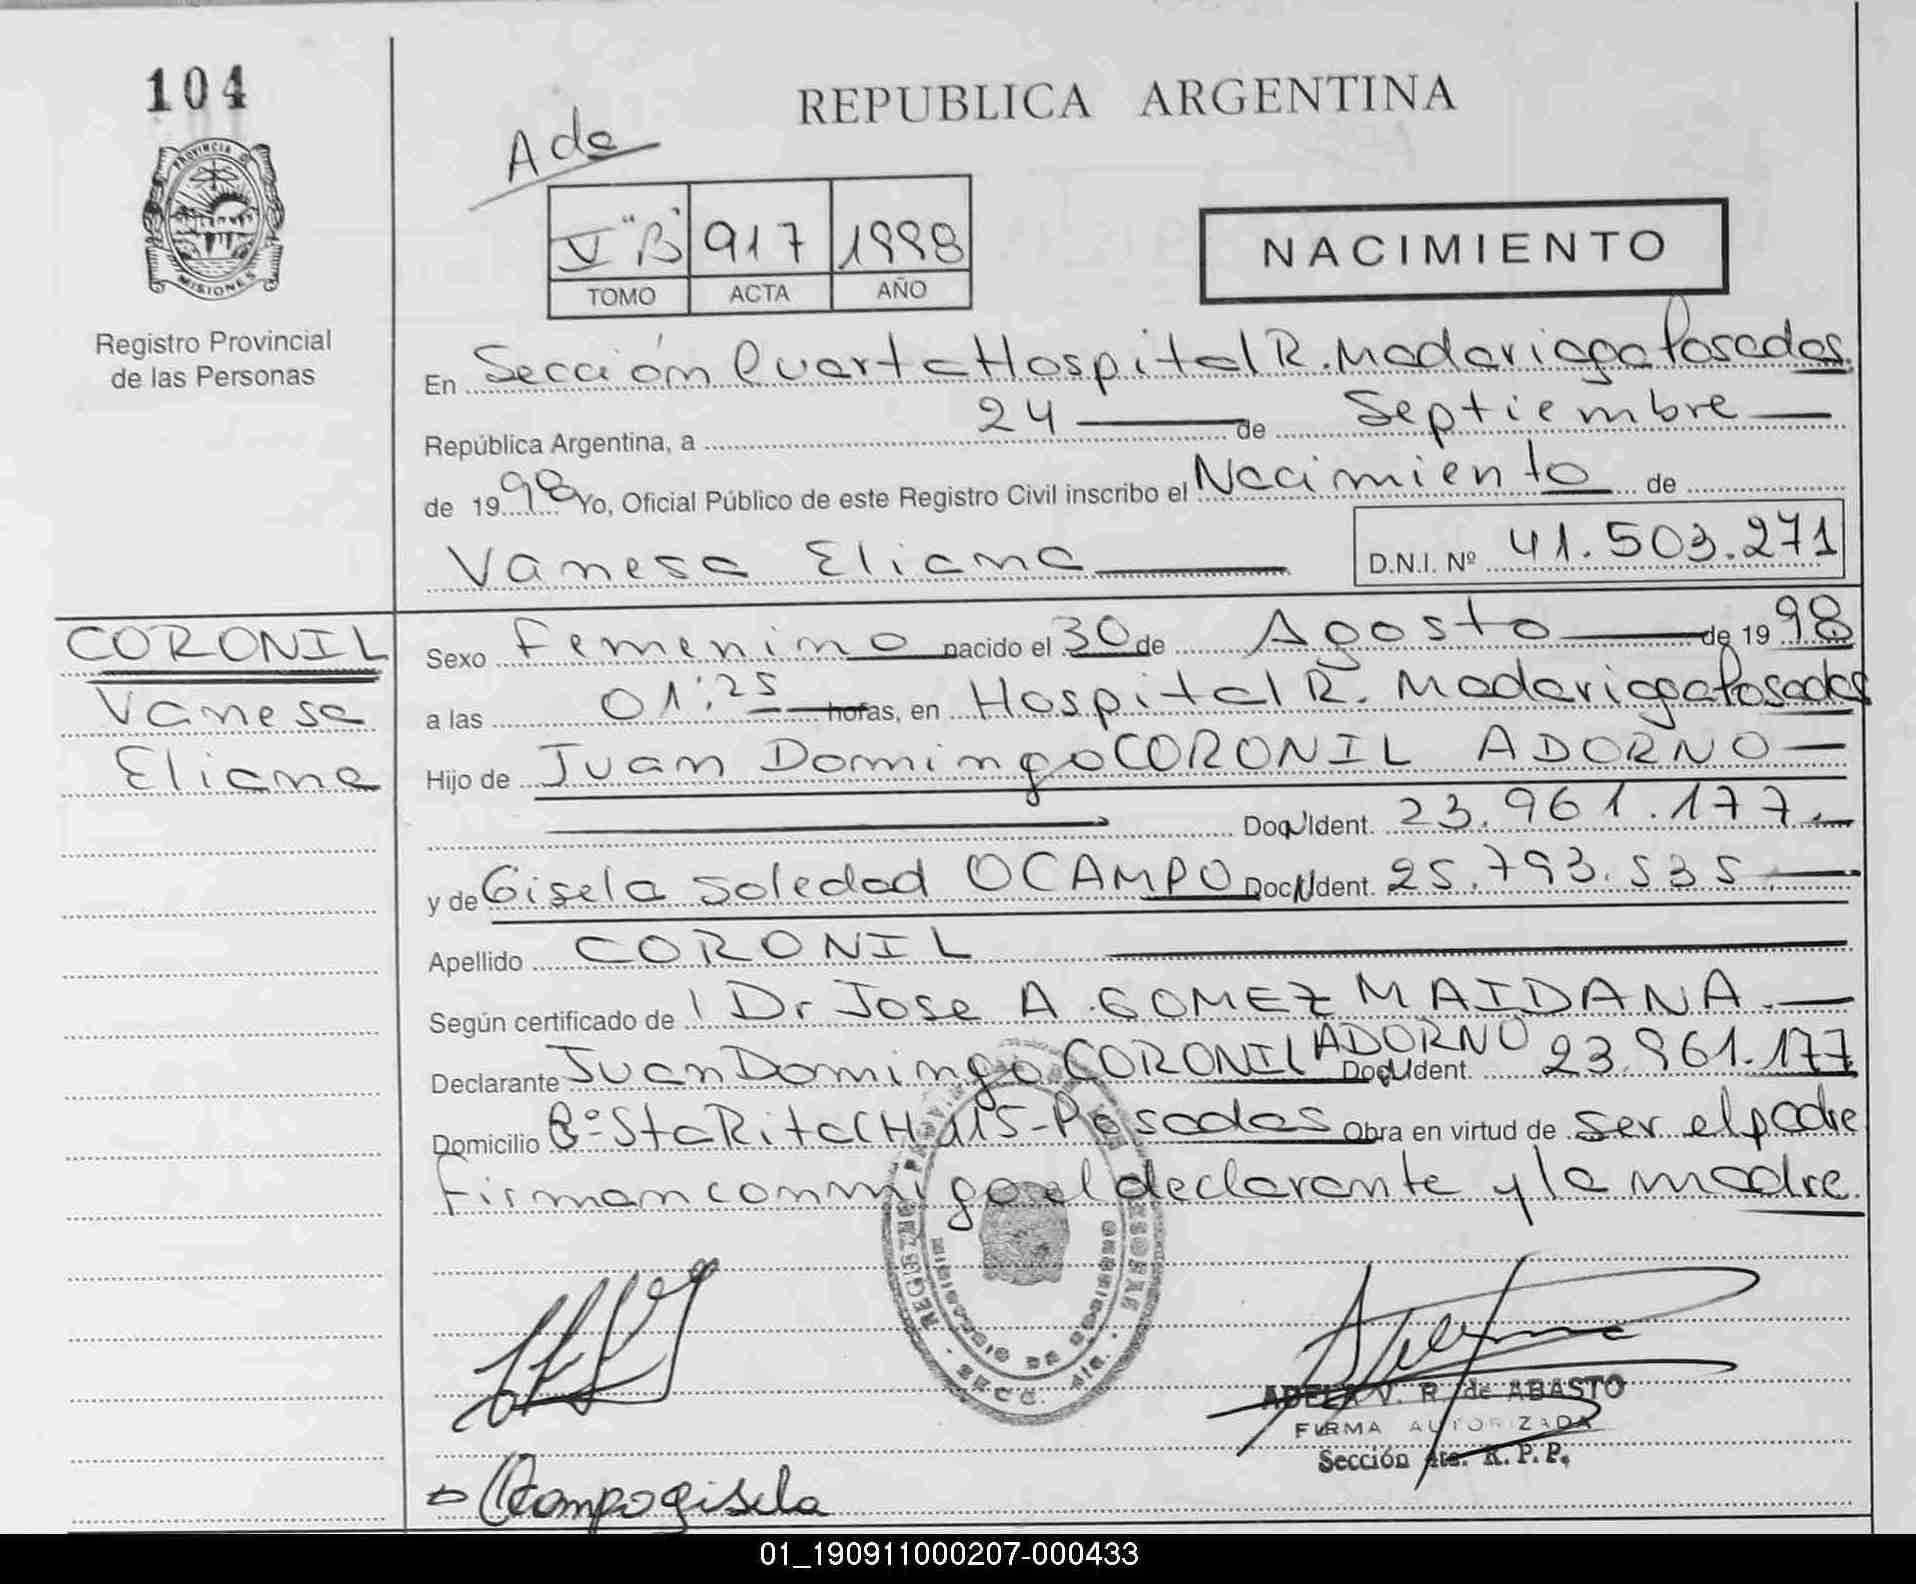 104
PROVINCIA D
MISIONES
Registro Provincial
de las Personas
REPUBLICA ARGENTINA
Ade
V "B" 917 1998
TOMO ACTA AÑO
NACIMIENTO
En Sección Cuarta Hospital R. Madariaga Posadas.
República Argentina, a 24 de Septiembre
de 1998 Yo, Oficial Público de este Registro Civil inscribo el Nacimiento de
Vanesa Eliana D.N.I. Nº 41.503.271
CORONIL
Vanesa
Eliana
Sexo femenino nacido el 30 de Agosto de 1998
a las 01:25 horas, en Hospital R. Madariaga Posadas
Hijo de Juan Domingo CORONIL ADORNO
Doc. Ident. 23.961.177.
y de Gisela Soledad OCAMPO Doc. Ident. 25.793.535.
Apellido CORONIL
Según certificado de l Dr Jose A. GOMEZ MAIDANA.
Declarante Juan Domingo CORONIL ADORNO Doc. Ident. 23.961.177
Domicilio Bº Sta Rita CH 115-Posadas Obra en virtud de ser el padre
firman conmigo el declarante y la madre.
ADELA V. R. de ABASTO
FIRMA AUTORIZADA
Sección 4ta. R. P. P.
Ocampo gisela
01_190911000207-000433